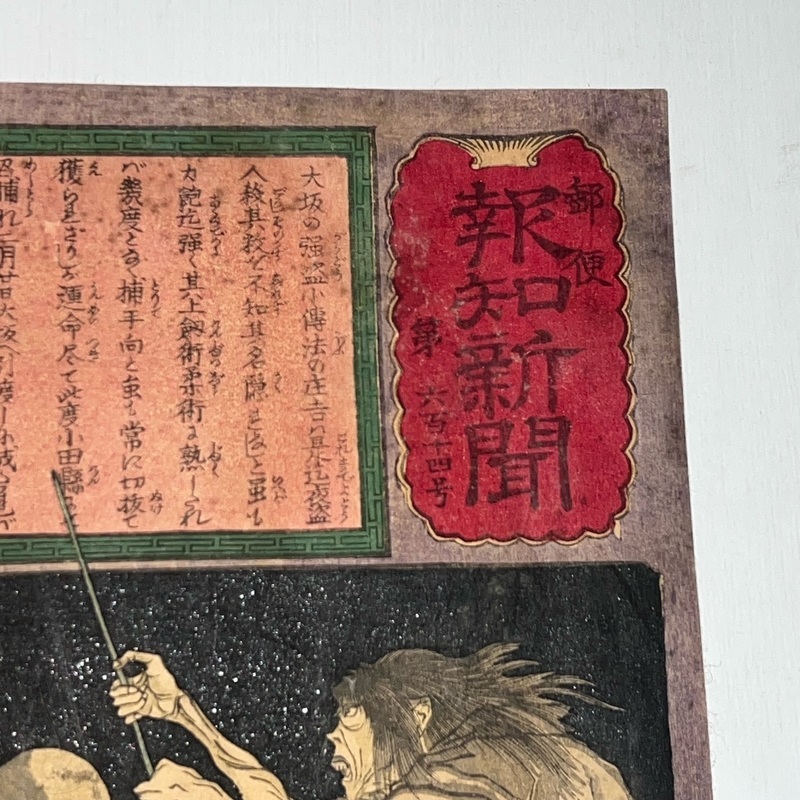 郵便
報知新聞
第六百十四号
大坂の強盗小傳法の庄吉ハ是迄夜盗
人殺其数を不知其名隠れなしと虽も
力飽迄強く其上劔術柔術に熟したれ
バ幾度となく捕手向と虽も常に切抜て
獲られざりしが運命尽て此度小田縣
召捕れ二月廿日大坂へ引渡し